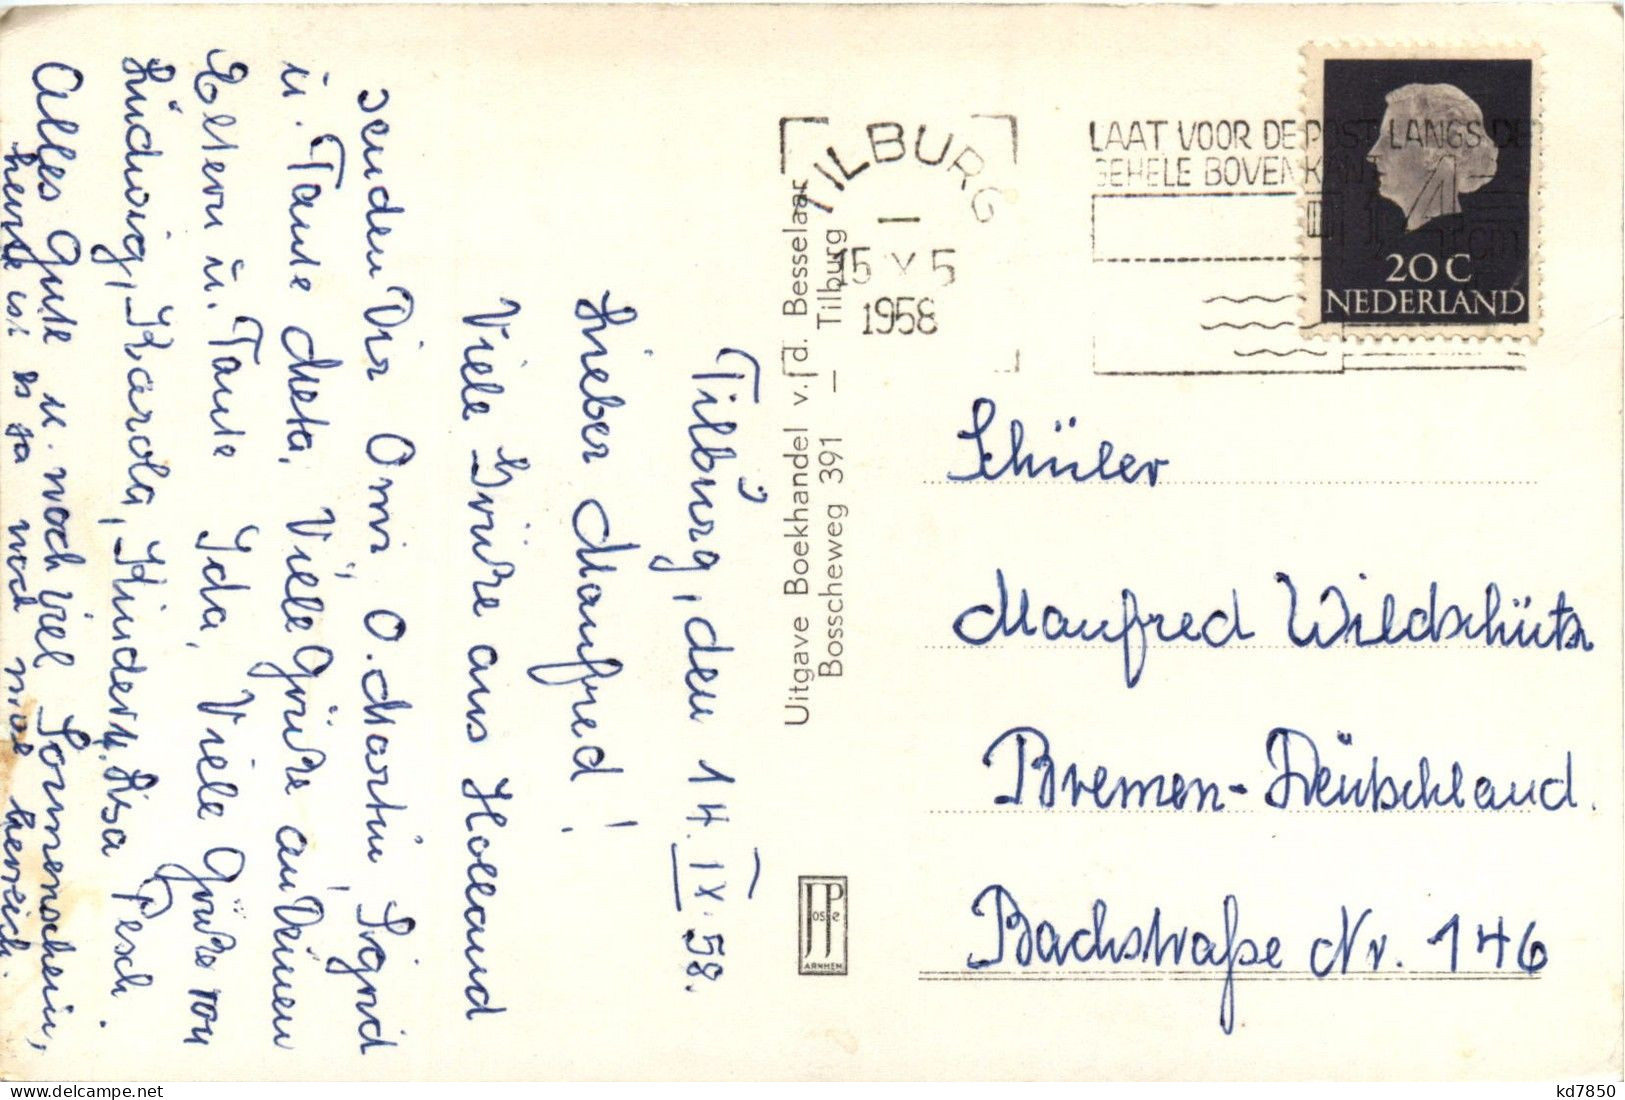 Tilburg, den 14. IX. 58.
Lieber Manfred!
Viele Grüße aus Holland
senden Dir Omi, O. Martin, Sigrid
u. Tante Meta, Viele Grüße an Deinen
Eltern u. Tante Ida, Viele Grüße von
Ludwig, Karola, Kindern, Lisa Pesch.
Alles Gute u. noch viel Sonnenschein,
heute ist es ja noch mal herrlich.
Uitgave Boekhandel v. d. Besselaar
Bosscheweg 391 — Tilburg
JosPe
ARNHEM
TILBURG
1958
LAAT VOOR DE POST LANGS DE
GEHELE BOVENKANT
cm
20 C
NEDERLAND
Schüler
Manfred Wildschütz
Bremen-Deutschland.
Bachstraße Nr. 146
delcampe.net
kd7850